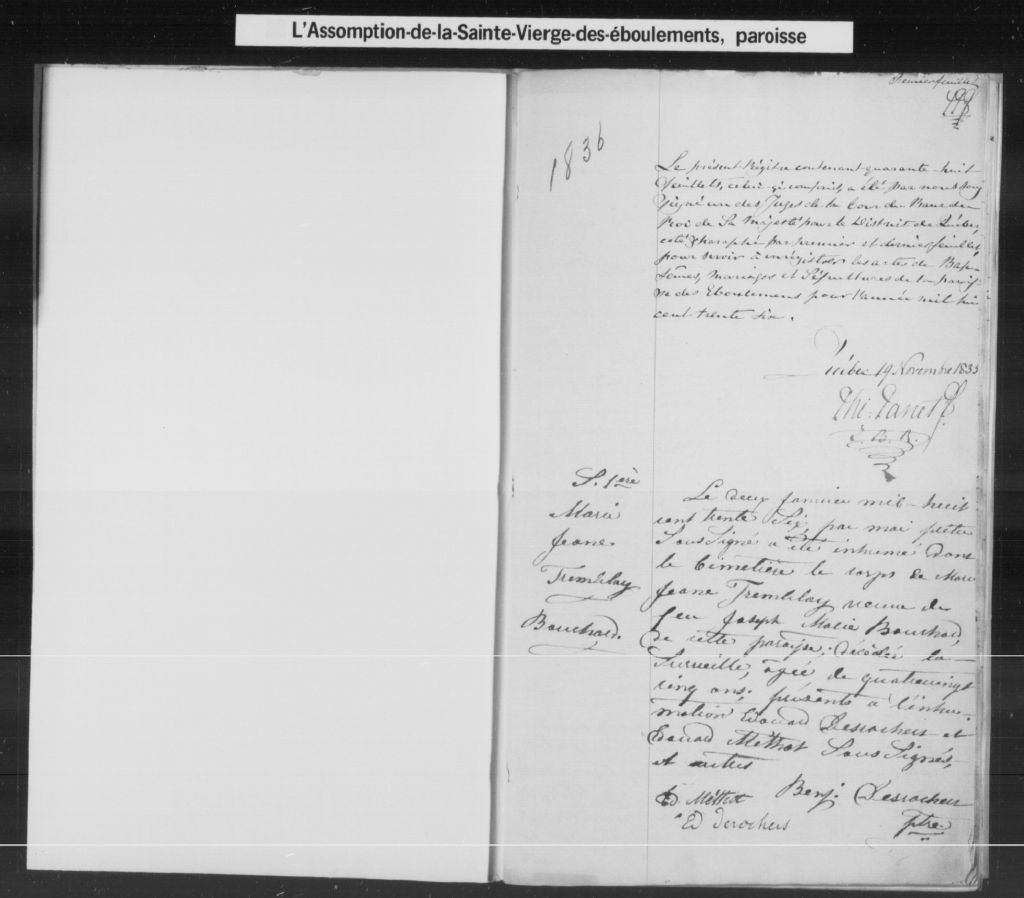 L'Assomption-de-la-Sainte-Vierge-des-éboulements, paroisse
Premier feuillet
1836
Le présent Régitre contenant quarante-huit
feuillets, celui-ci compris, a été par nous Sous
signé un des Juges de la Cour du Banc du
Roi de Sa Majesté pour le District de Québec,
coté & paraphé par premier et dernier feuillet,
pour servir à enrégistrer les actes de Bap-
têmes, Mariages et Sépultures de la parois-
se des Eboulemens pour l'année mil hui
cent trente Six.
Québec 19 Novembre 1835
S. 1ère
Marie
Jeane
Tremblay
Bouchard.
Le deux janvier mil-huit
cent trente Six par moi prêtre
Sous Signé a été inhumé dans
le Cimetière le corps de Marie
Jeane Tremblay veuve de
feu Joseph Marie Bouchard,
de cette paroisse, décédée la
Surveille, agée de quatrevingt
cinq ans; présents à l'inhu-
mation Edouard Desrochers et
Edouard Methot Sous Signés,
et autres
Ed Méthot Benj. Desrochers
Ed Derochers ptre.